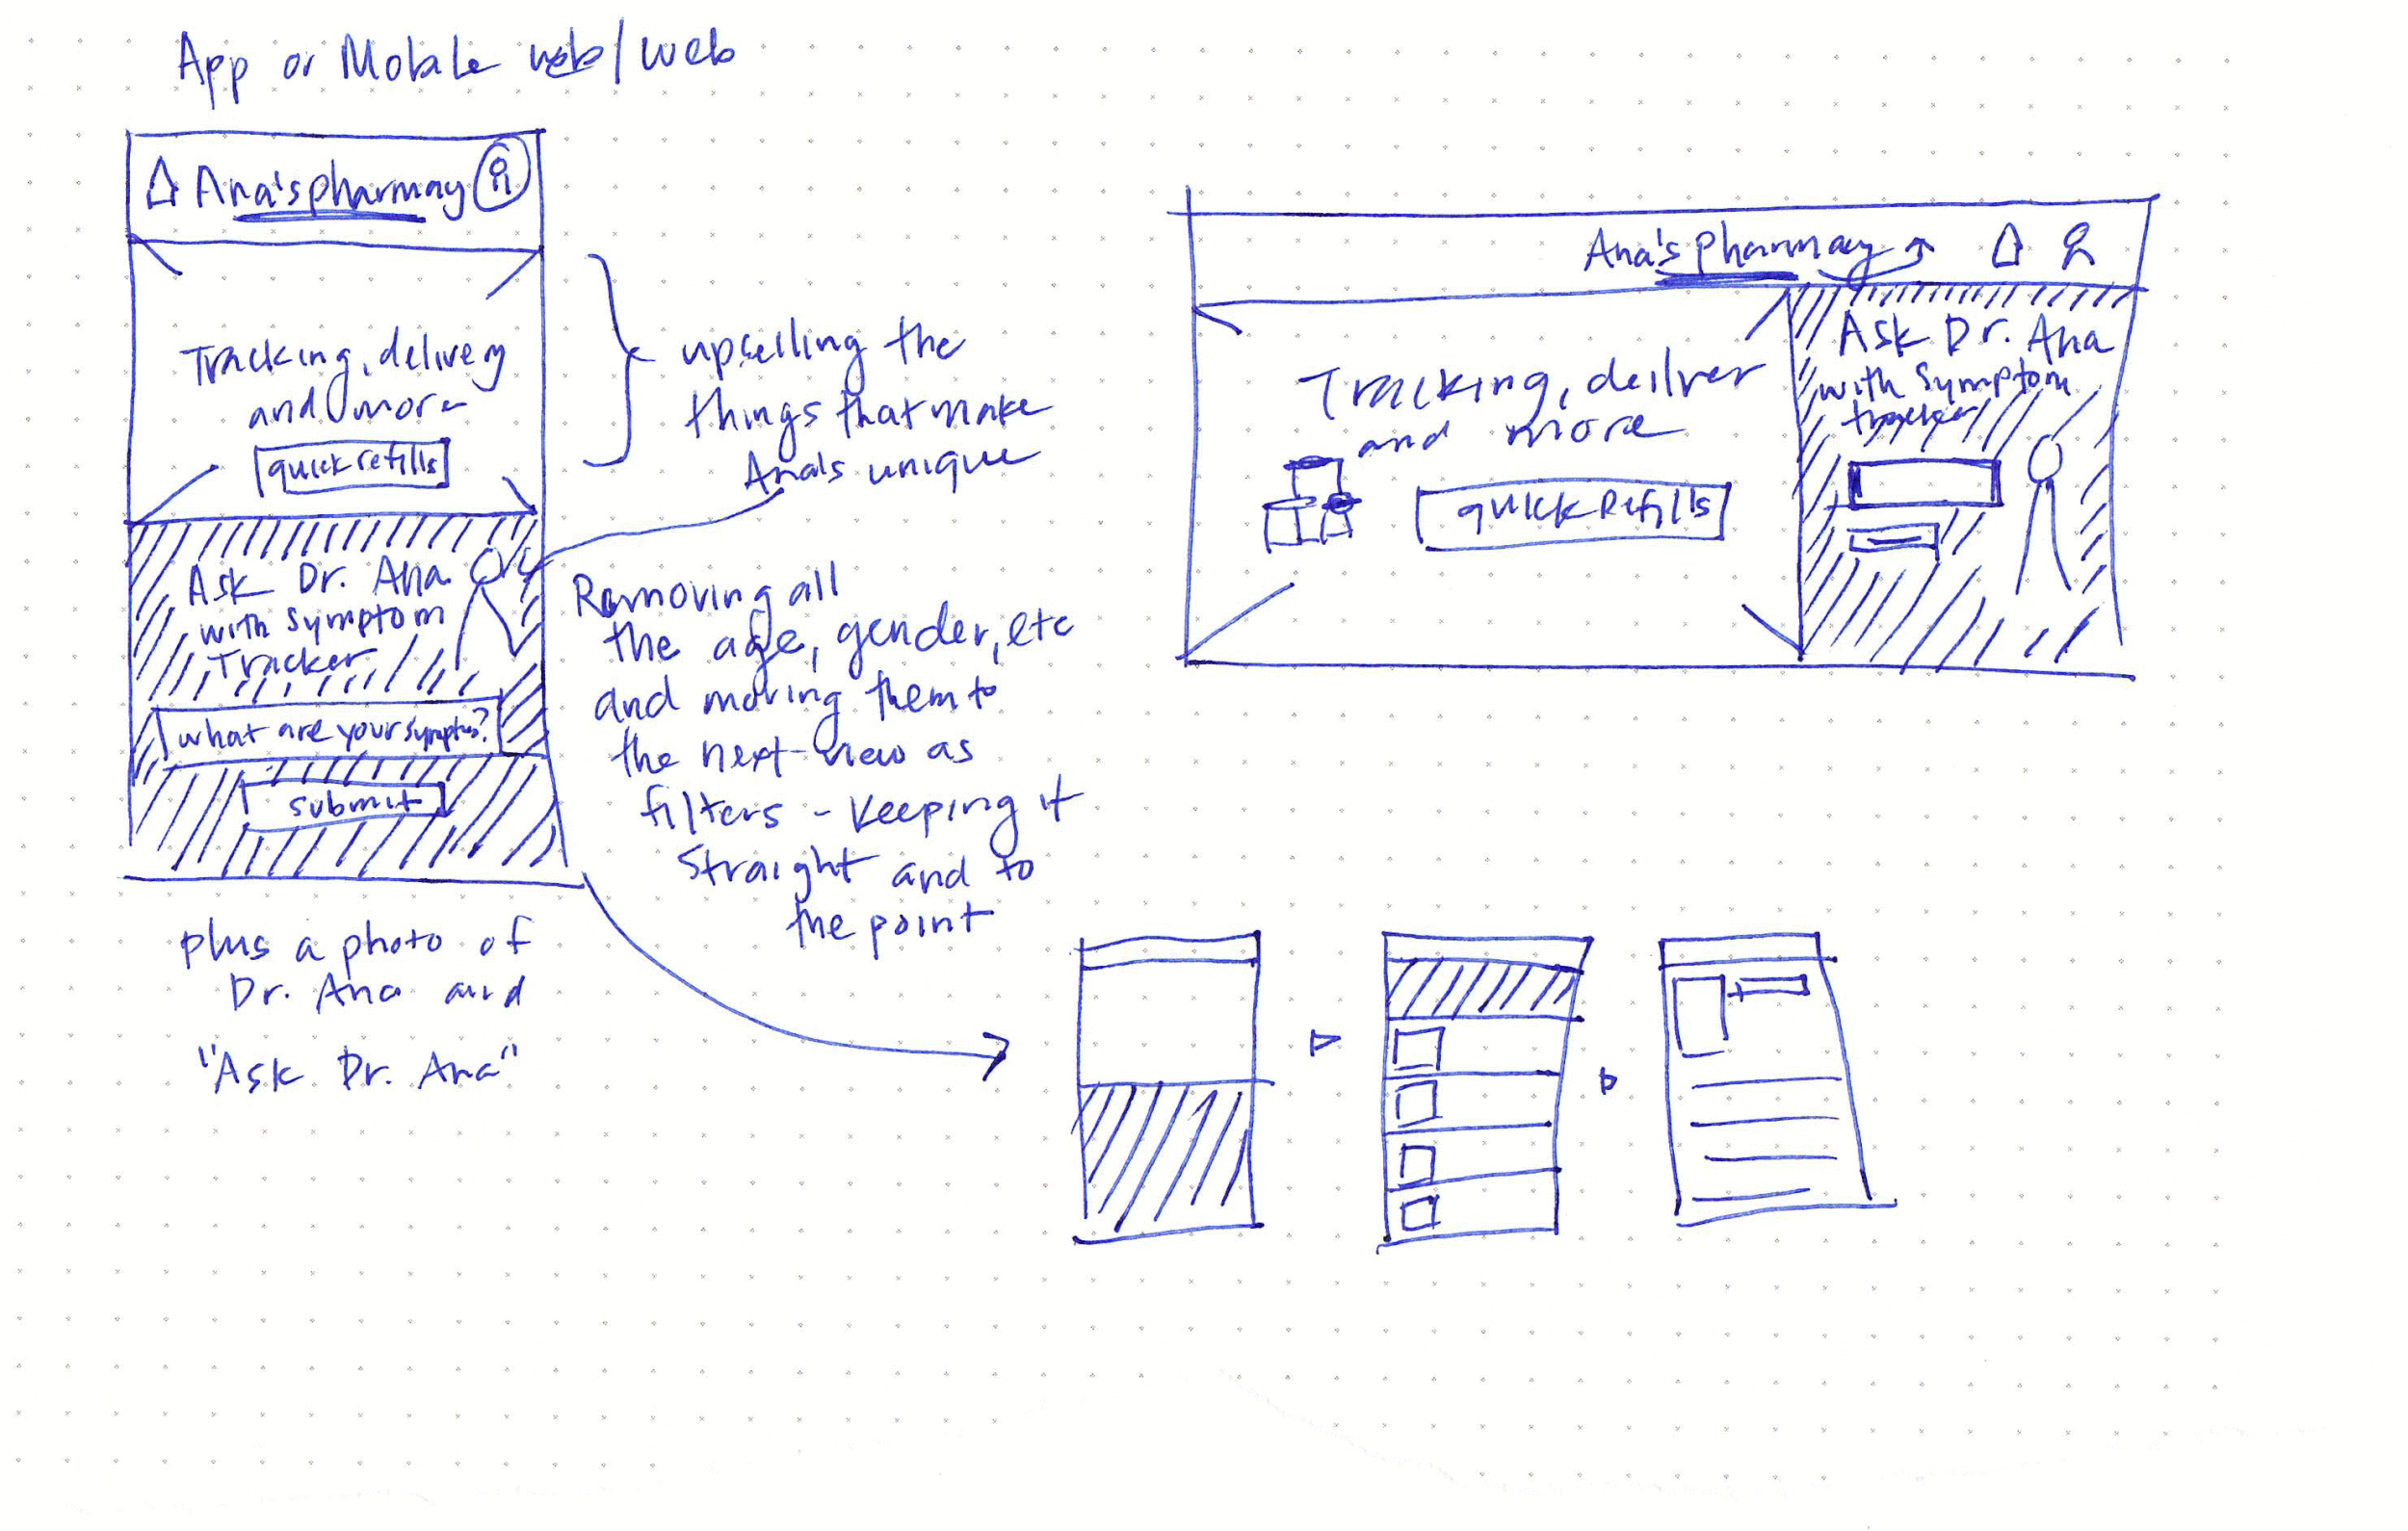 App or Mobile web/web
Ana's pharmay
Tracking, delivery
and more
quick refills
Ask Dr. Ana
with symptom
Tracker
what are your symptms?
submit
plus a photo of
Dr. Ana and
"Ask Dr. Ana"
upselling the
things that make
Ana's unique
Removing all
the age, gender, etc
and moving them to
the next view as
filters - keeping it
straight and to
the point
Ana's pharmay
Tracking, deilver
and more
quick Refills
Ask Dr. Ana
with symptom
tracker